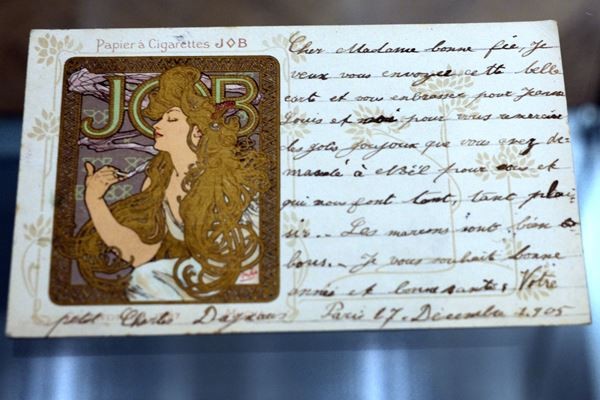 Papier à Cigarettes JOB
JOB
Cher Madame bonne fée, Je
veux vous envoyer cette belle
cart et vous embrasser pour Jeanne
Louis et moi pour vous remercier
les jolis joujoux que vous avez de-
mandé à Nöél pour nous et
qui nous font tant, tant plai-
sir.. Les marrons sont bien
bons. Je vous souhait bonne
année et bonne santé. Votre
petit Charles Paris 17. Décembre 1905